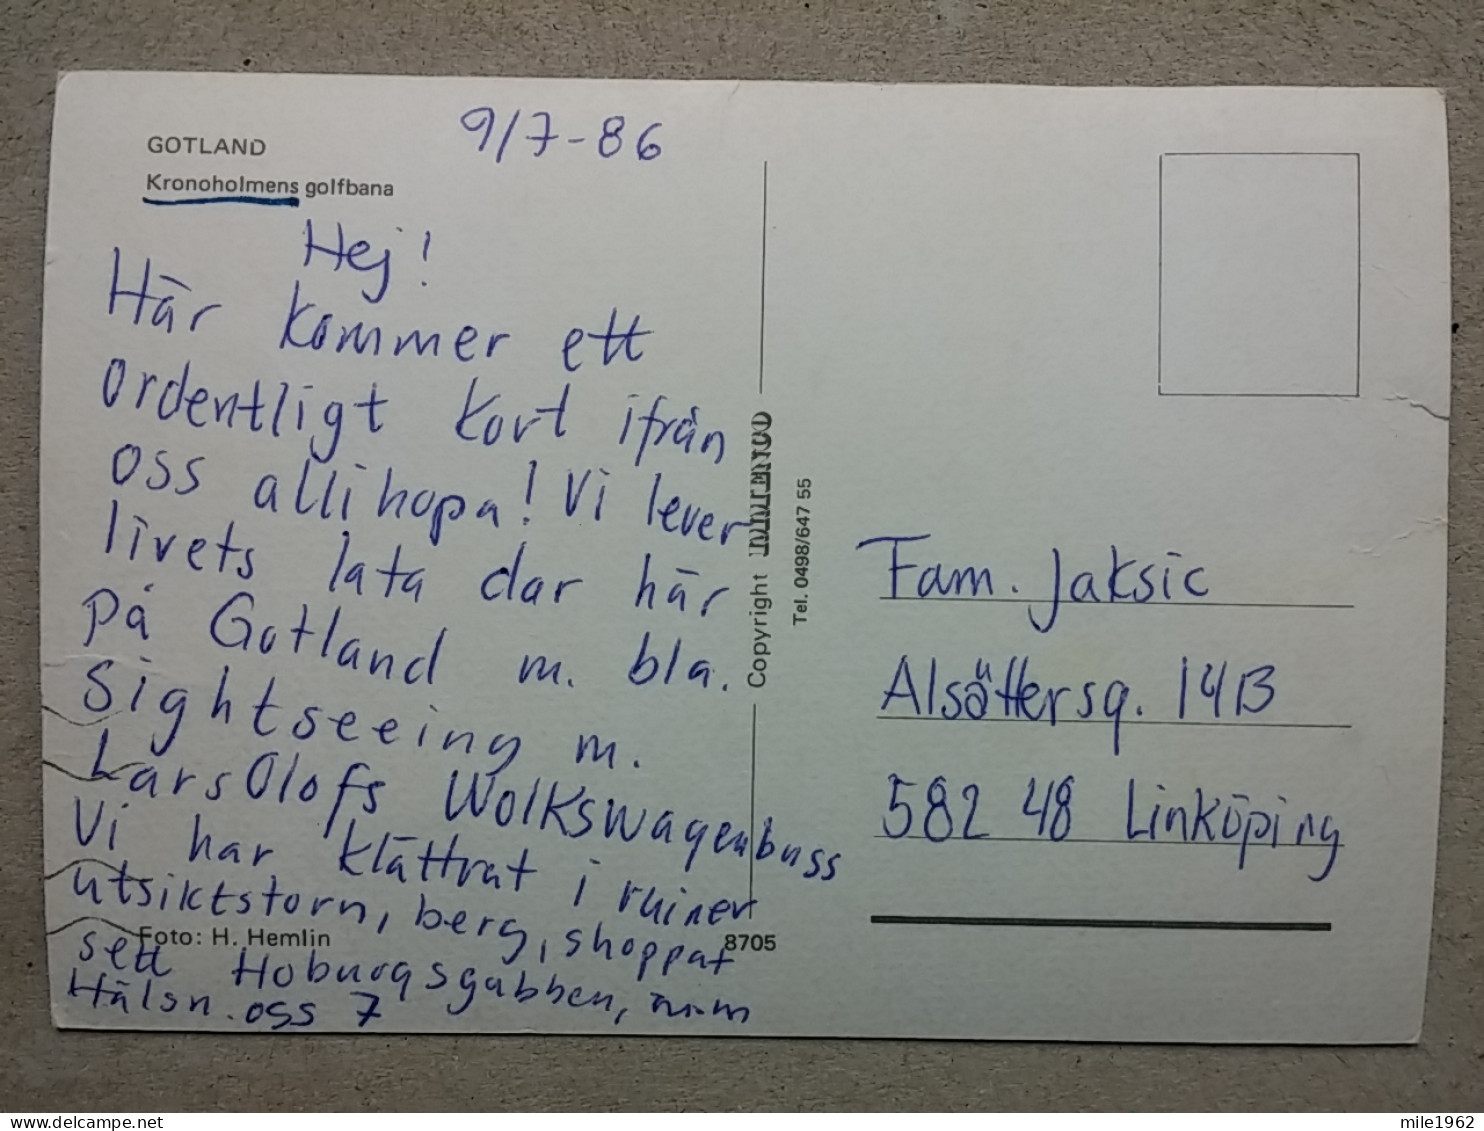 GOTLAND
Kronoholmens golfbana
9/7-86
Hej!
Här kommer ett
ordentligt kort ifrån
oss allihopa! Vi lever
livets lata dar här
på Gotland m. bla.
Sightseeing m.
LarsOlofs Wolkswagenbuss
Vi har klättrat i ruiner
utsiktstorn, berg, shoppat
sett Hoburgsgabben, m.m
Hälsn. oss 7
Foto: H. Hemlin
8705
Copyright
Tel. 0498/647 55
Fam. Jaksic
Alsättersg. 14B
582 48 Linköping
delcampe.net
mile1962